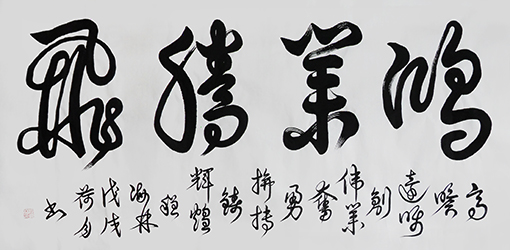 鴻業騰飛
高
瞻
遠矚
創
偉業
奮
勇
拚搏
鑄
輝煌
海林
戊戌
荷月
书